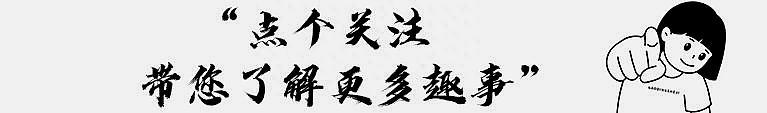 “点个关注
带您了解更多趣事”